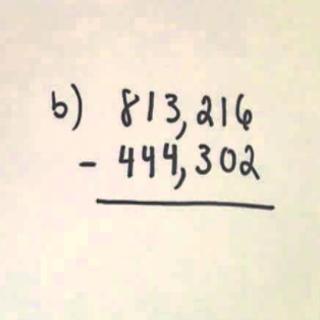 b) 813,216
- 444,302